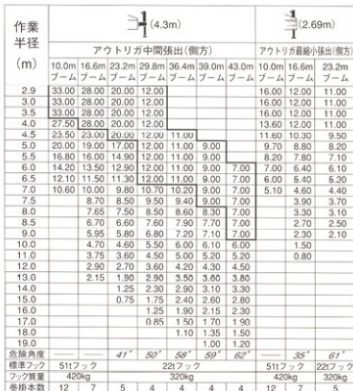 作業
半径
(m)
(4.3m) (2.69m)
アウトリガ中間張出(側方) アウトリガ最縮小張出(側方)
10.0m 16.6m 23.2m 29.8m 36.4m 39.0m 43.0m 10.0m 16.6m 23.2m
ブーム ブーム ブーム ブーム ブーム ブーム ブーム ブーム ブーム ブーム
2.9 33.00 28.00 20.00 12.00 16.00 12.00 11.00
3.0 33.00 28.00 20.00 12.00 16.00 12.00 11.00
3.5 33.00 28.00 20.00 12.00 16.00 12.00 11.00
4.0 27.50 28.00 20.00 12.00 13.60 12.00 11.00
4.5 23.50 23.00 20.00 12.00 11.00 11.60 10.30 9.50
5.0 20.00 19.00 17.00 12.00 11.00 9.00 9.70 8.80 8.20
5.5 16.80 16.00 14.90 12.00 11.00 9.00 8.20 7.80 7.10
6.0 14.20 13.50 12.90 12.00 11.00 9.00 7.00 7.00 6.40 6.10
6.5 12.10 11.50 11.30 12.00 11.00 9.00 7.00 6.00 5.40 5.20
7.0 10.60 10.00 9.80 10.70 10.20 9.00 7.00 5.10 4.60 4.40
7.5 8.70 8.50 9.50 9.40 9.00 7.00 3.90 3.70
8.0 7.65 7.50 8.50 8.60 8.30 7.00 3.30 3.10
8.5 6.70 6.60 7.60 7.90 7.70 7.00 2.70 2.50
9.0 5.95 5.80 6.80 7.20 7.10 7.00 2.30 2.10
10.0 4.70 4.60 5.50 6.00 6.10 6.00 1.50
11.0 3.75 3.60 4.50 5.00 5.20 5.20 0.80
12.0 2.90 2.70 3.60 4.20 4.30 4.50
13.0 2.15 1.90 2.90 3.50 3.60 3.80
14.0 1.25 2.30 2.90 3.10 3.30
15.0 0.75 1.75 2.40 2.60 2.80
16.0 1.25 1.90 2.15 2.30
17.0 0.85 1.50 1.70 1.90
18.0 1.10 1.35 1.50
19.0 1.00 1.20
危険角度 41° 50° 58° 59° 62° 35° 61°
標準フック 51tフック 22tフック 51tフック 22tフック
フック質量 420kg 320kg 420kg 320kg
巻掛本数 12 7 5 4 4 4 4 12 7 5